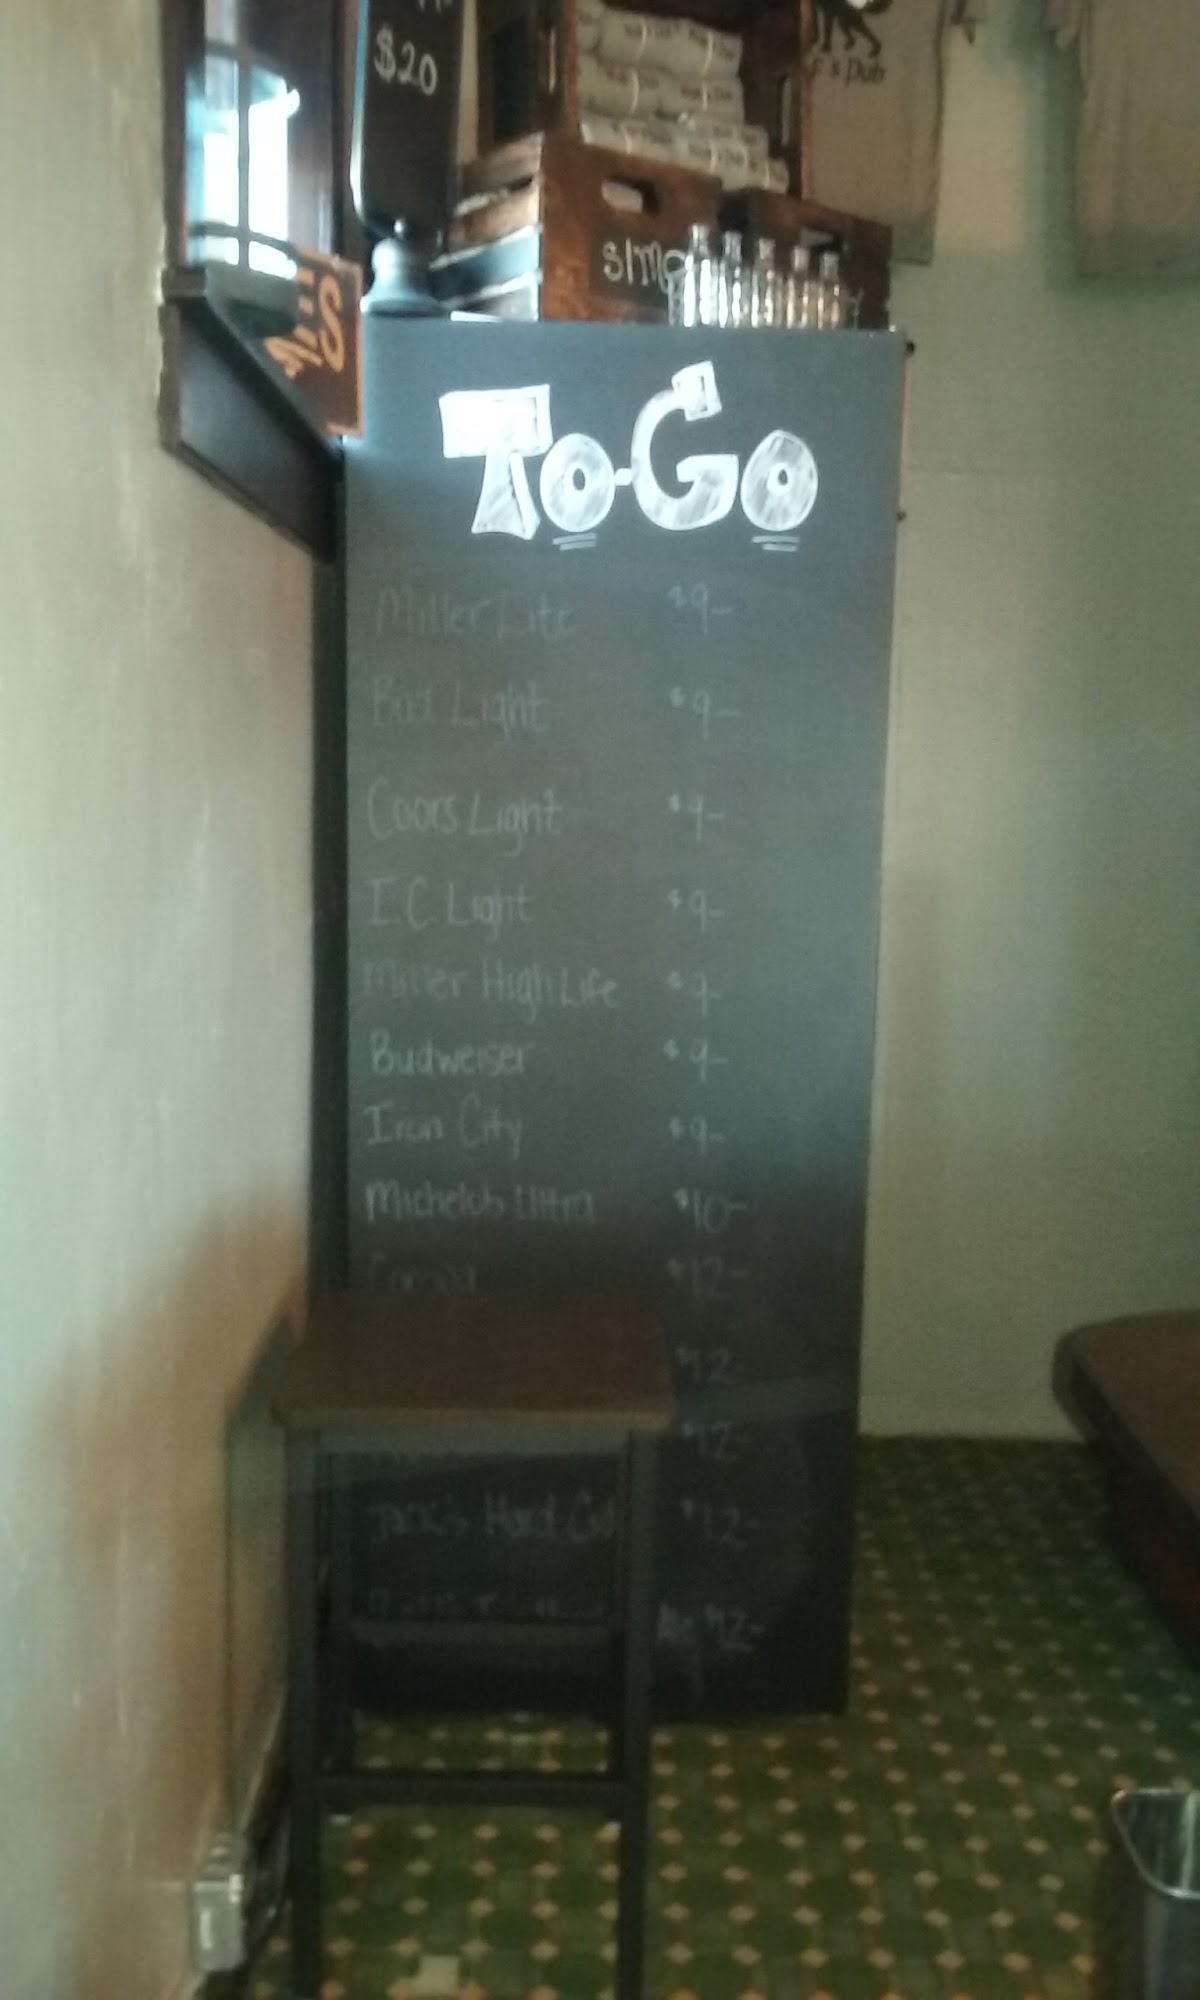 $20
's Pub
To-Go
Miller Lite $9-
Bud Light $9-
Coors Light $9-
I.C. Light $9-
Miller High Life $9-
Budweiser $9-
Iron City $9-
Michelob Ultra $10-
Corona $12-
$12-
$12-
Jack's Hard $12-
$12-